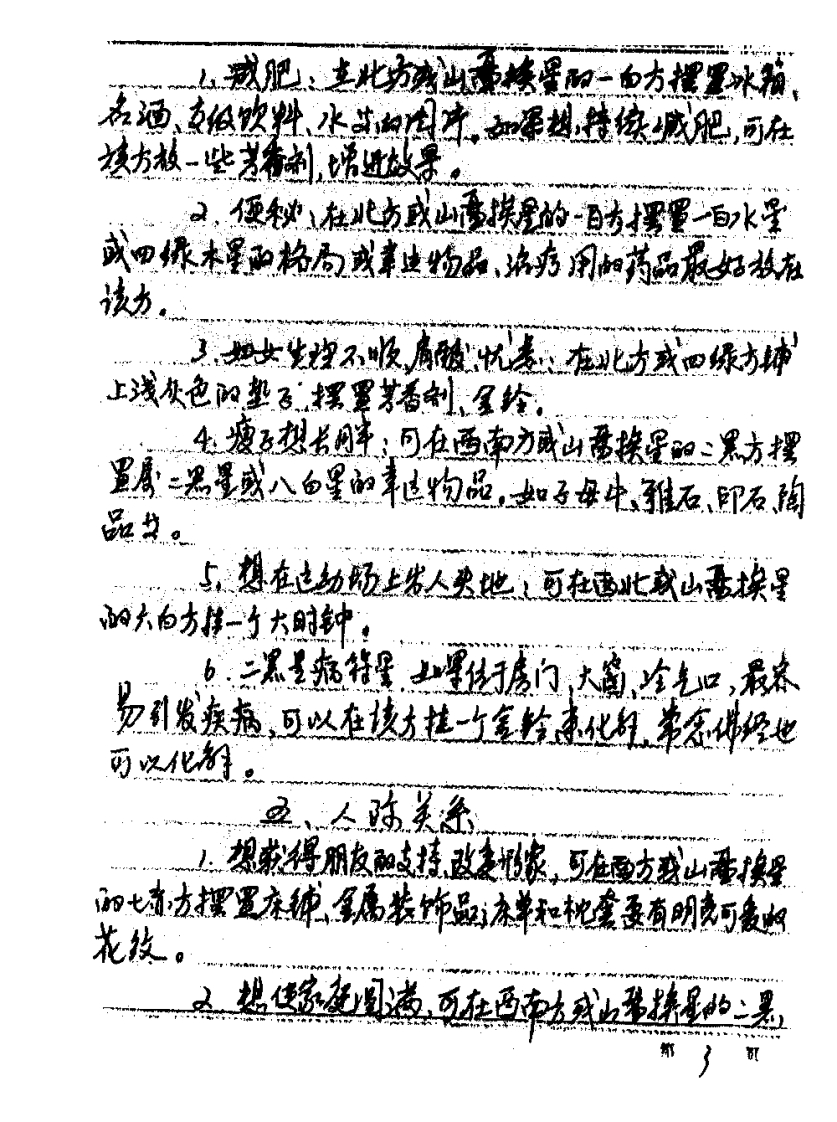 1、减肥：在北方或山普挨星的一白方摆置冰箱、
名酒、高级饮料、水草的图片。如果想持续减肥，可在
该方放一些芳香剂，增进效果。
2、便秘：在北方或山普挨星的一白方摆置一白水星
或四绿木星的格局或幸运物品、治疗用的药品最好放在
该方。
3、妇女生理不顺、肩酸、忧患：在北方或四绿方铺
上浅灰色的垫子，摆置芳香剂、金铃。
4、瘦子想长胖：可在西南方或山普挨星的二黑方摆
置属二黑星或八白星的幸运物品。如子母牛、雅石、印石、陶
品等。
5、想在运动场上出人头地：可在西北或山普挨星
的六白方挂一个大时钟。
6、二黑是病符星，如果位于房门、大窗、冷气口，最容
易引发疾病，可以在该方挂一个金铃来化解，常念佛经也
可以化解。
五、人际关系
1、想获得朋友的支持、改变形象，可在西方或山普挨星
的七赤方摆置床铺、金属装饰品；床单和枕套要有明亮可爱的
花纹。
2、想使家庭圆满，可在西南方或山普挨星的二黑，
第 3 页